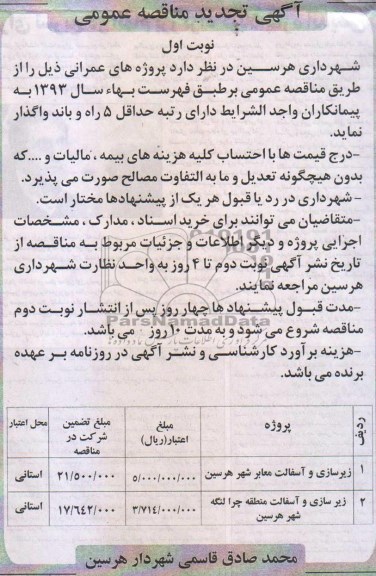 آگهی تجدید مناقصه عمومی
نوبت اول
شهرداری هرسین در نظر دارد پروژه های عمرانی ذیل را از
طریق مناقصه عمومی برطبق فهرست بهاء سال ۱۳۹۳ به
پیمانکاران واجد الشرایط دارای رتبه حداقل ۵ راه و باند واگذار
نماید.
-درج قیمت ها با احتساب کلیه هزینه های بیمه ، مالیات و ....که
بدون هیچگونه تعدیل و ما به التفاوت مصالح صورت می پذیرد.
- شهرداری در رد یا قبول هر یک از پیشنهادها مختار است.
-متقاضیان می توانند برای خرید اسناد ، مدارک ، مشخصات
اجرایی پروژه و دیگر اطلاعات و جزئیات مربوط به مناقصه از
تاریخ نشر آگهی نوبت دوم تا ۴ روز به واحد نظارت شهرداری
هرسین مراجعه نمایند.
-مدت قبول پیشنهاد ها چهار روز پس از انتشار نوبت دوم
مناقصه شروع می شود و به مدت ۱۰ روز می باشد.
ParsNamadData
-هزینه برآورد کارشناسی و نشر آگهی در روزنامه بر عهده
برنده می باشد.
ردیف پروژه مبلغ اعتبار(ریال) مبلغ تضمین شرکت در مناقصه محل اعتبار
۱ زیرسازی و آسفالت معابر شهر هرسین ۵/۰۰۰/۰۰۰/۰۰۰ ۲۱/۵۰۰/۰۰۰ استانی
۲ زیر سازی و آسفالت منطقه چرا لنگه شهر هرسین ۳/۷۱۴/۰۰۰/۰۰۰ ۱۷/۶۴۲/۰۰۰ استانی
محمد صادق قاسمی شهردار هرسین